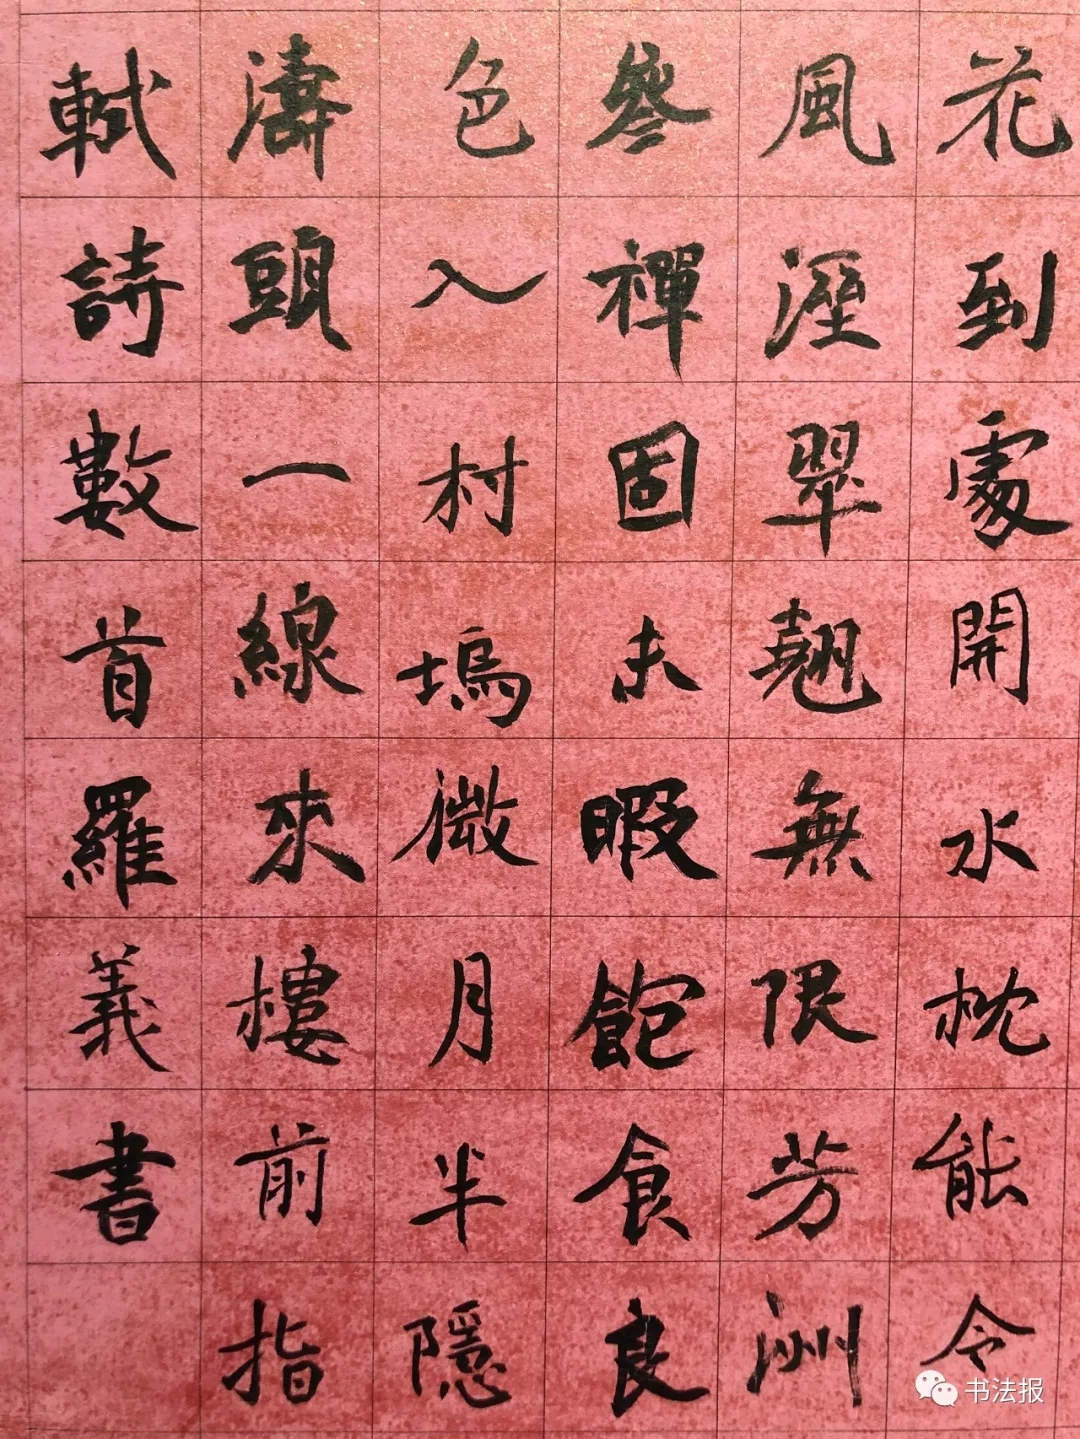 花到處開水枕能令
風溼翠翹無限芳洲
參禪固未暇飽食良
色入村塢微月半隱
濤頭一線來樓前指
軾詩數首羅義書
书法报